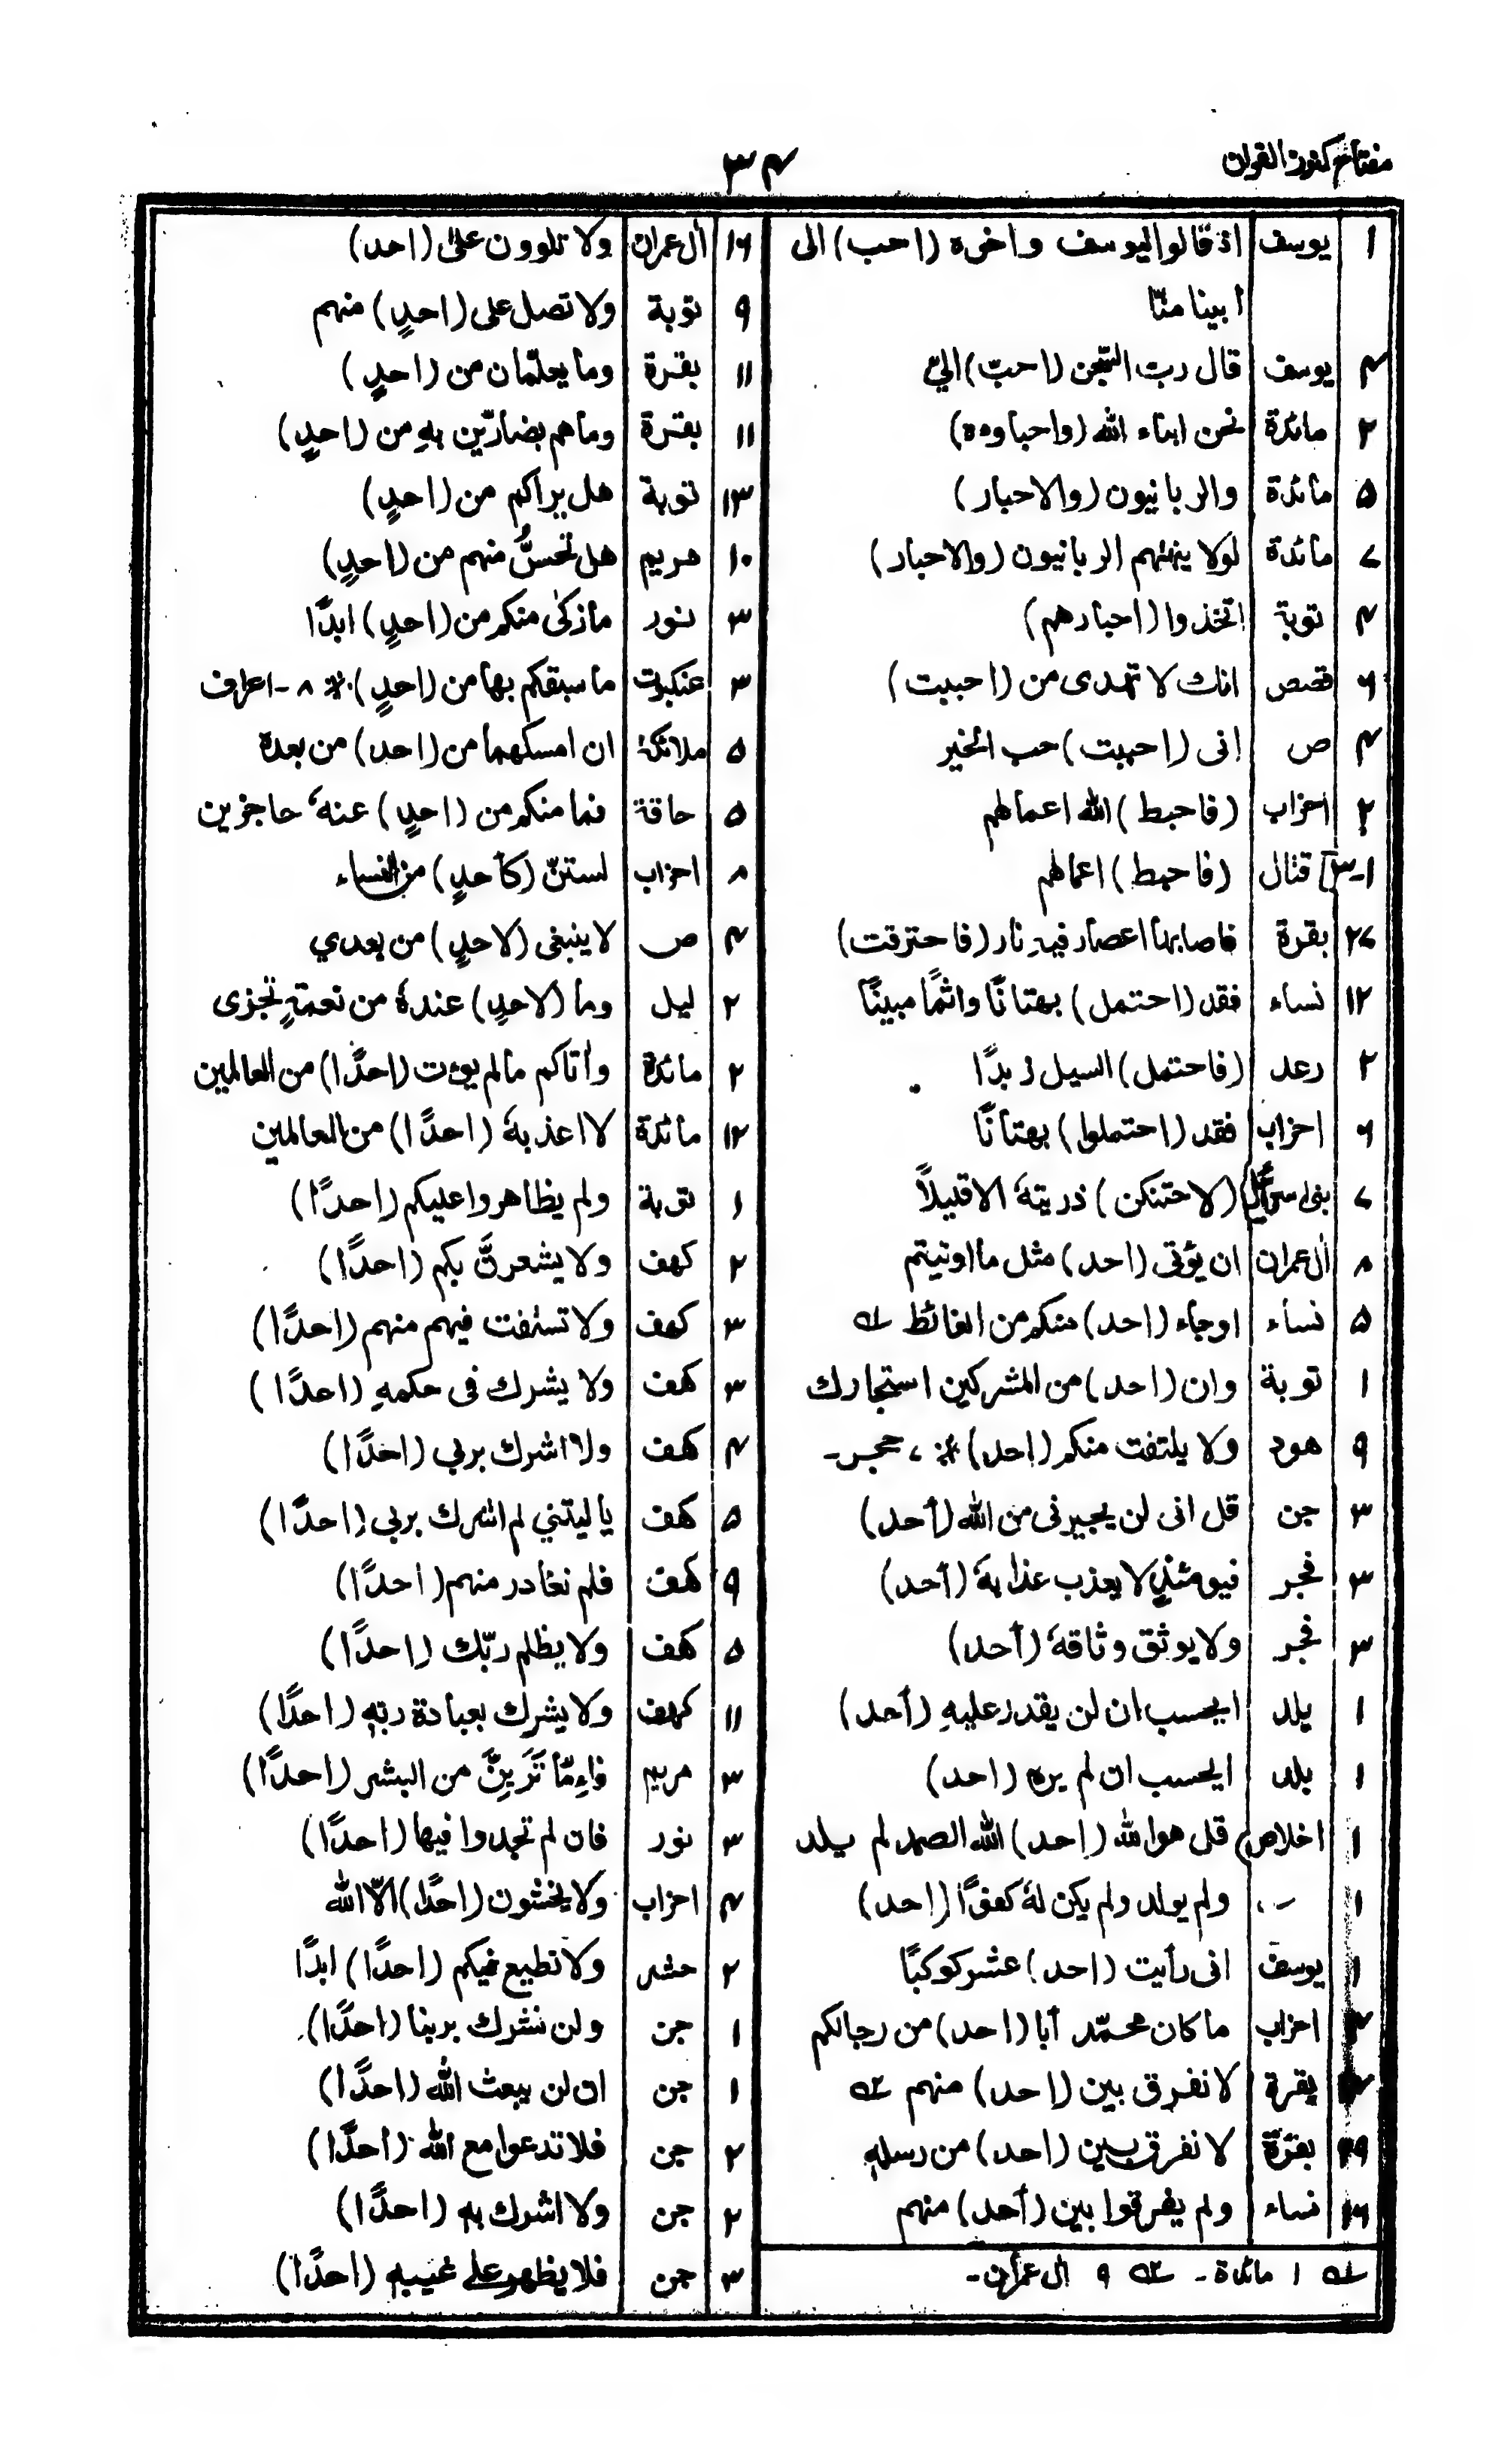 مفتاح كنوز القران
۳۴
۱ يوسف اذ قالوا ليوسف واخوه (احب) الى
ابينا منّا
۴ يوسف قال ربّ السّجن (احبّ) اليّ
۲ مائدة نحن ابناء الله (واحباوه)
۵ مائدة والربانيون (والاحبار)
۷ مائدة لولا ينهٰهم الربانيون (والاحبار)
۴ توبة اتخذوا (احبارهم)
۶ قصص انك لا تهدى من (احببت)
۴ ص انى (احببت) حب الخير
۲ احزاب (فاحبط) الله اعمالهم
۱-۳ قتال (فاحبط) اعمالهم
۲۷ بقرة فاصابها اعصار فيهِ نار (فاحترقت)
۱۲ نساء فقد (احتمل) بهتانًا واثمًا مبينًا
۲ رعد (فاحتمل) السيل زبدًا
۶ احزاب فقد (احتملوا) بهتانًا
۷ بنى اسرائيل (لاحتنكن) ذريتهٗ الا قليلاً
۸ اٰل عمران ان يؤتى (احد) مثل ما اوتيتم
۵ نساء اوجاء (احد) منكم من الغائط ؎۱
۱ توبة وان (احد) من المشركين استجارك
۹ هود ولا يلتفت منكم (احد) ※، حجر-
۳ جن قل انى لن يجيرنى من الله (أحد)
۳ فجر فيومئذٍ لا يعذب عذابهٗ (أحد)
۳ فجر ولا يوثق وثاقهٗ (أحد)
۱ بلد ايحسب ان لن يقدر عليهِ (أحد)
۱ بلد ايحسب ان لم يره (احد)
۱ اخلاص قل هو الله (احد) الله الصمد لم يلد
۱ ،، ولم يولد ولم يكن لهٗ كفوًا (احد)
۱ يوسف انى رأيت (احد) عشر كوكبًا
احزاب ما كان محمّد أبا (احد) من رجالكم
بقرة لا نفرق بين (احد) منهم ؎۲
۳۹ بقرة لا نفرق بين (احد) من رسلهِ
نساء ولم يفرقوا بين (أحد) منهم
؎۱ ۱ مائدة- ؎۲ ۹ اٰل عمران-
۱۶ اٰل عمران ولا تلوون علىٰ (احد)
۹ توبة ولا تصل على (احدٍ) منهم
۱۱ بقرة وما يعلّمان من (احدٍ)
۱۱ بقرة وما هم بضارّين بهِ من (احدٍ)
۱۳ توبة هل يراكم من (احدٍ)
۱۰ مريم هل تحسُّ منهم من (احدٍ)
۳ نور ما زكىٰ منكم من (احدٍ) ابدًا
۳ عنكبوت ما سبقكم بها من (احدٍ) ※ ۸-اعراف
۵ ملائكة ان امسكهما من (احد) من بعده
۵ حاقة فما منكم من (احدٍ) عنهٗ حاجزين
۸ احزاب لستنّ (كأحدٍ) من النساء
۴ ص لا ينبغى (لاحدٍ) من بعدي
۲ ليل وما (لاحدٍ) عندهٗ من نعمةٍ تجزى
۲ مائدة وأتاكم ما لم يؤت (احدًا) من العالمين
۱۲ مائدة لا اعذبهٗ (احدًا) من العالمين
۱ توبة ولم يظاهروا عليكم (احدًا)
۲ كهف ولا يشعرنَّ بكم (احدًا)
۳ كهف ولا تستفت فيهم منهم (احدًا)
۳ كهف ولا يشرك فى حكمهِ (احدًا)
۴ كهف ولا اشرك بربي (احدًا)
۵ كهف يا ليتني لم اشرك بربي (احدًا)
۹ كهف فلم نغادر منهم (احدًا)
۵ كهف ولا يظلم ربّك (احدًا)
۱۱ كهف ولا يشرك بعبادة ربّهِ (احدًا)
۳ مريم فاِمّا تَرَيِنَّ من البشر (احدًا)
۳ نور فان لم تجدوا فيها (احدًا)
۴ احزاب ولا يخشون (احدًا) الّا الله
۲ حشر ولا نطيع فيكم (احدًا) ابدًا
۱ جن ولن نشرك بربنا (احدًا)
۱ جن ان لن يبعث الله (احدًا)
۲ جن فلا تدعوا مع الله (احدًا)
۲ جن ولا اشرك بهِ (احدًا)
۳ جن فلا يظهر على غيبهِ (احدًا)